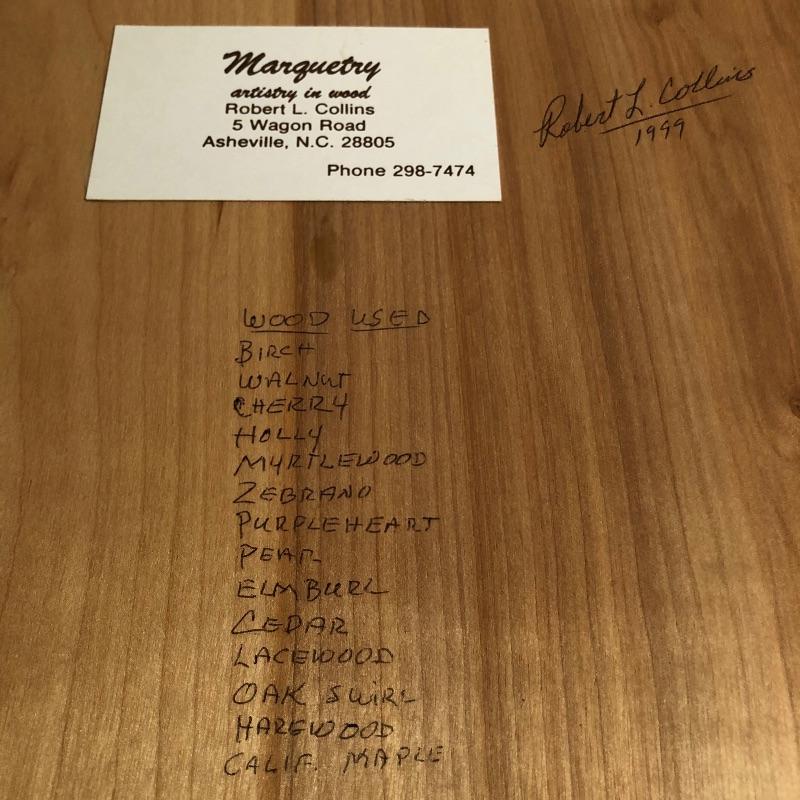 Marquetry
artistry in wood
Robert L. Collins
5 Wagon Road
Asheville, N.C. 28805
Phone 298-7474
Robert L. Collins
1999
WOOD USED
BIRCH
WALNUT
CHERRY
HOLLY
MYRTLEWOOD
ZEBRANO
PURPLEHEART
PEAR
ELM BURL
CEDAR
LACEWOOD
OAK SWIRL
HAREWOOD
CALIF. MAPLE